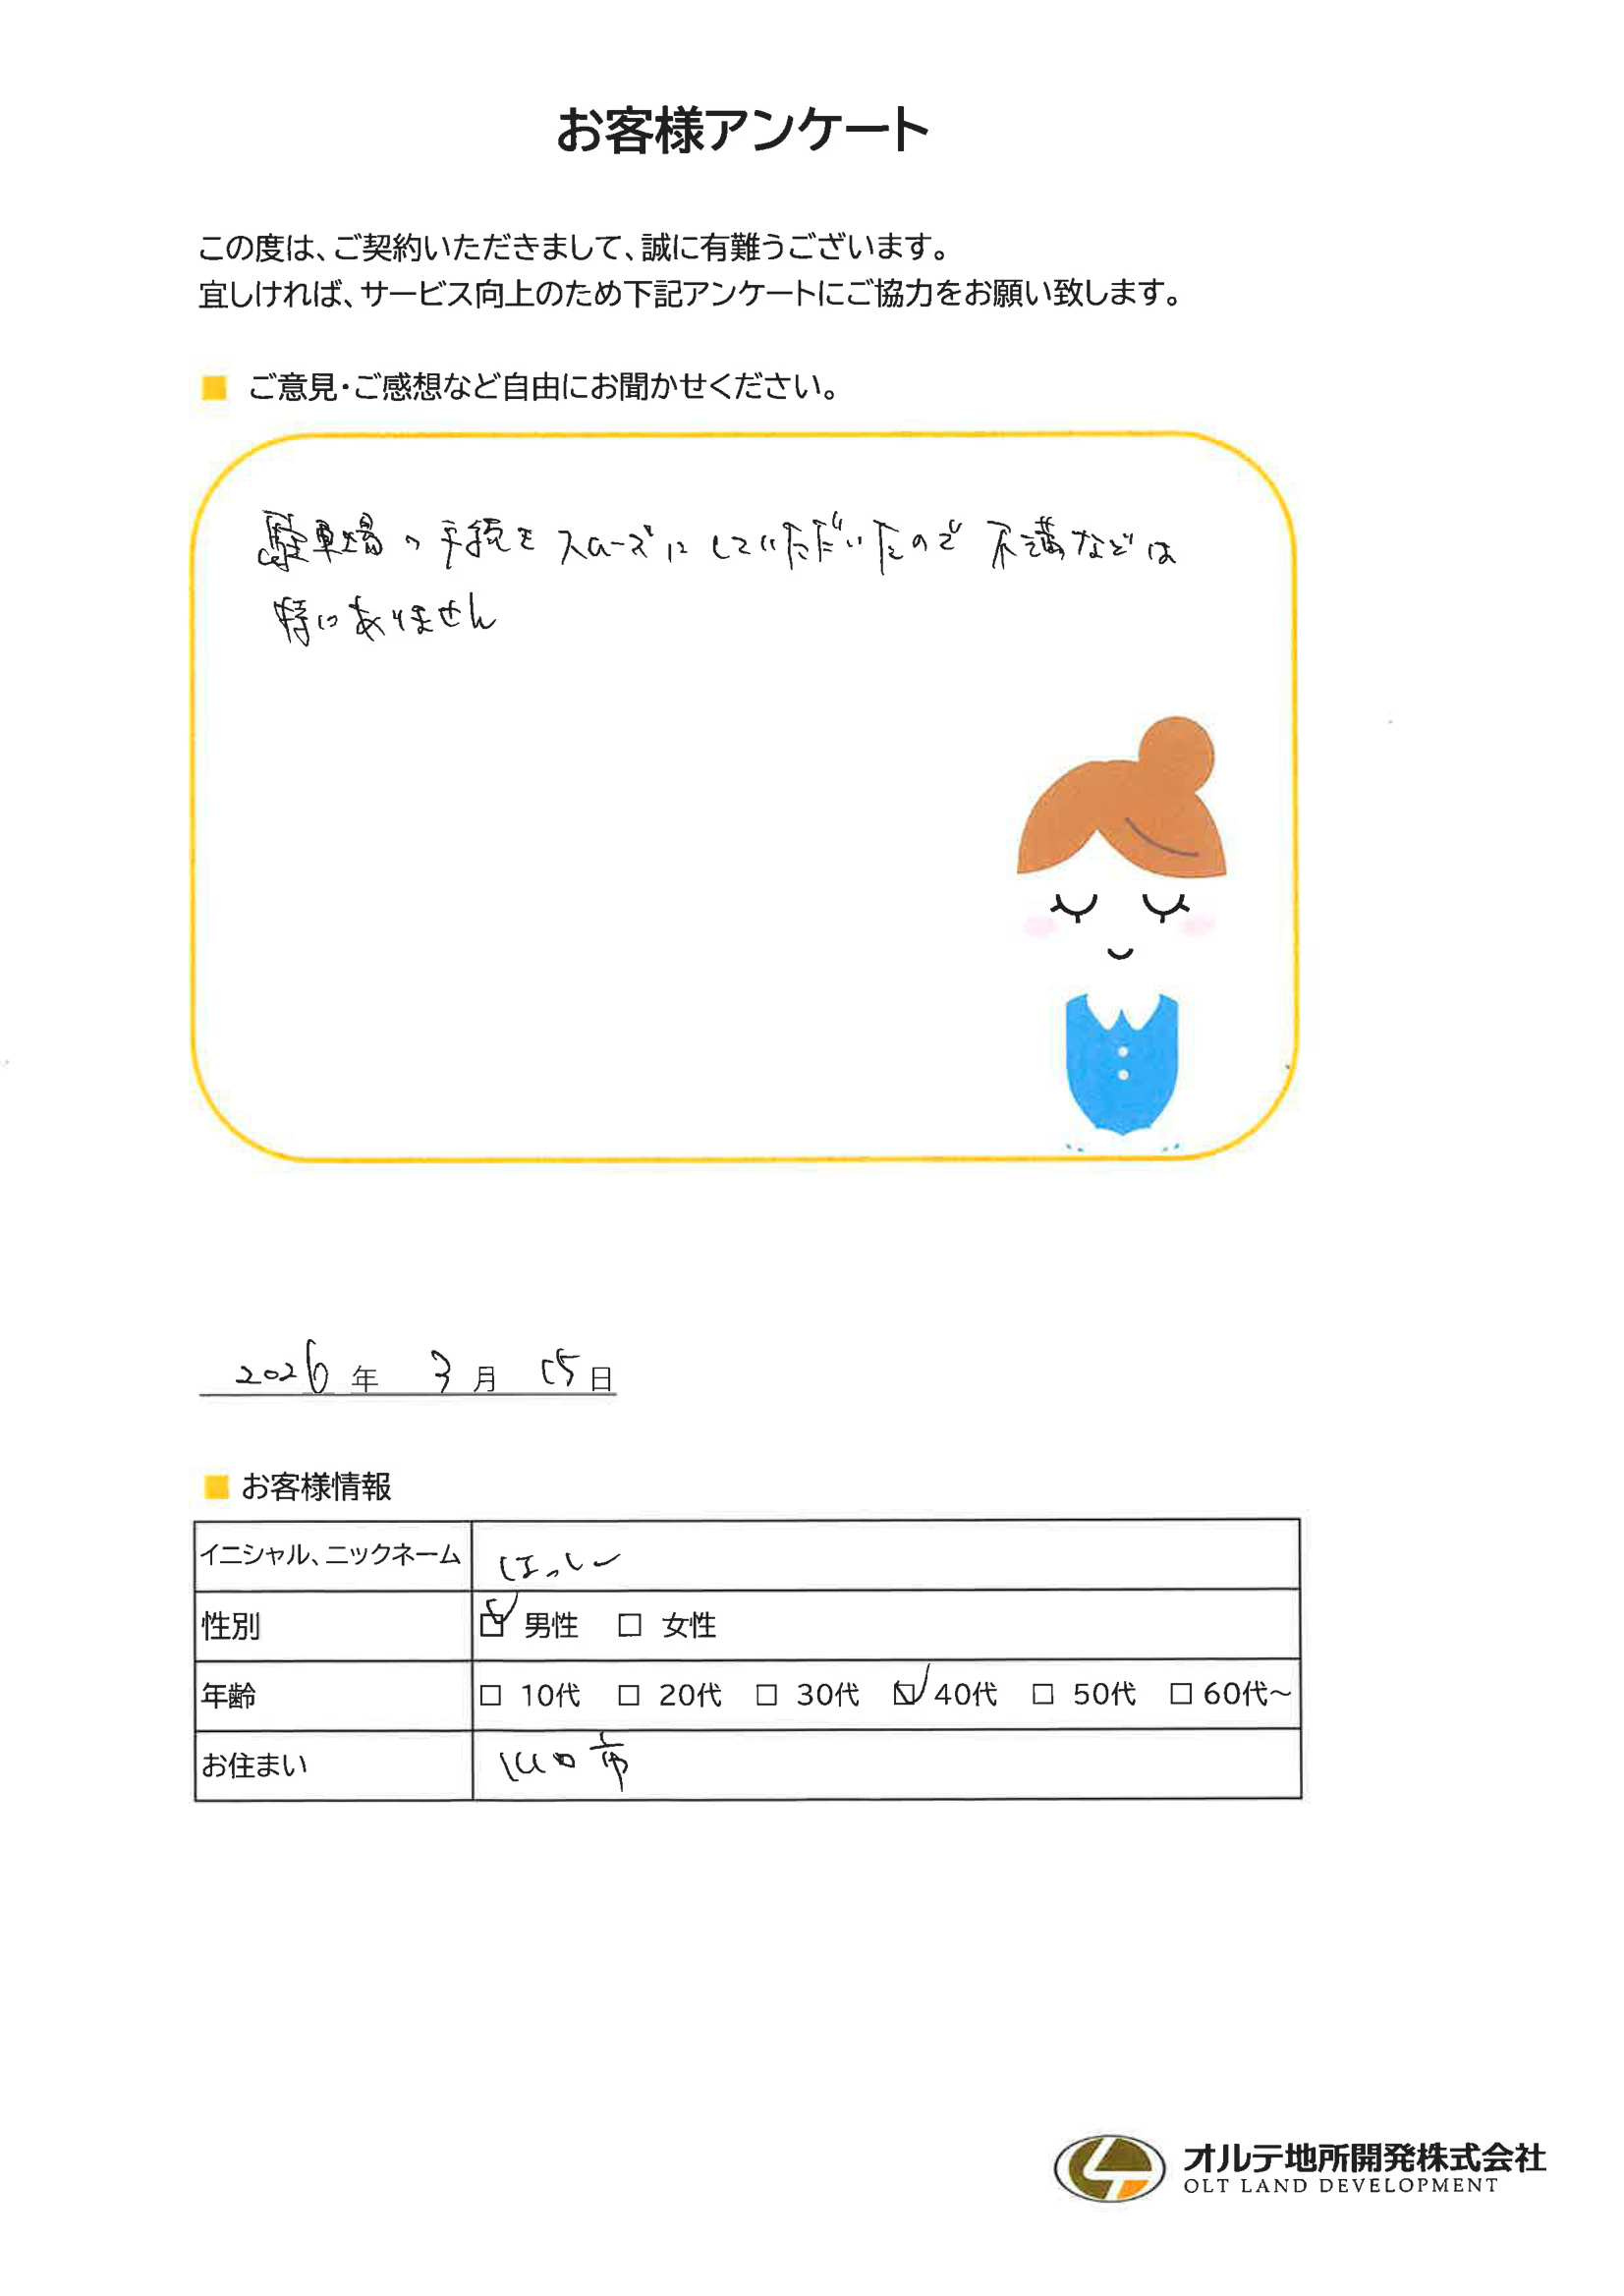 お客様アンケート
この度は、ご契約いただきまして、誠に有難うございます。
宜しければ、サービス向上のため下記アンケートにご協力をお願い致します。
■ ご意見・ご感想など自由にお聞かせください。
駐車場の手続をスムーズにしていただいたので不満などは
特にありません
2026年 3月 15日
■ お客様情報
イニシャル、ニックネーム ほっしー
性別 ☑ 男性 □ 女性
年齢 □ 10代 □ 20代 □ 30代 ☑ 40代 □ 50代 □ 60代~
お住まい 川口市
オルテ地所開発株式会社
OLT LAND DEVELOPMENT